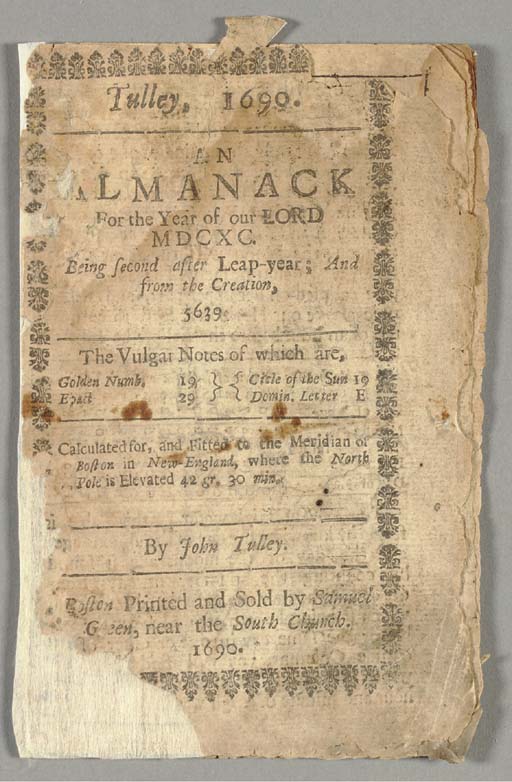 Tulley, 1690.
AN
ALMANACK
For the Year of our LORD
MDCXC.
Being ſecond after Leap-year; And
from the Creation,
5639.
The Vulgar Notes of which are,
Golden Numb. 19 } { Circle of the Sun 19
Epact 29 } { Domin. Letter E
Calculated for, and Fitted to the Meridian of
Boſton in New-England, where the North
Pole is Elevated 42 gr. 30 min.
By John Tulley.
Boſton Printed and Sold by Samuel
Green, near the South Church.
1690.